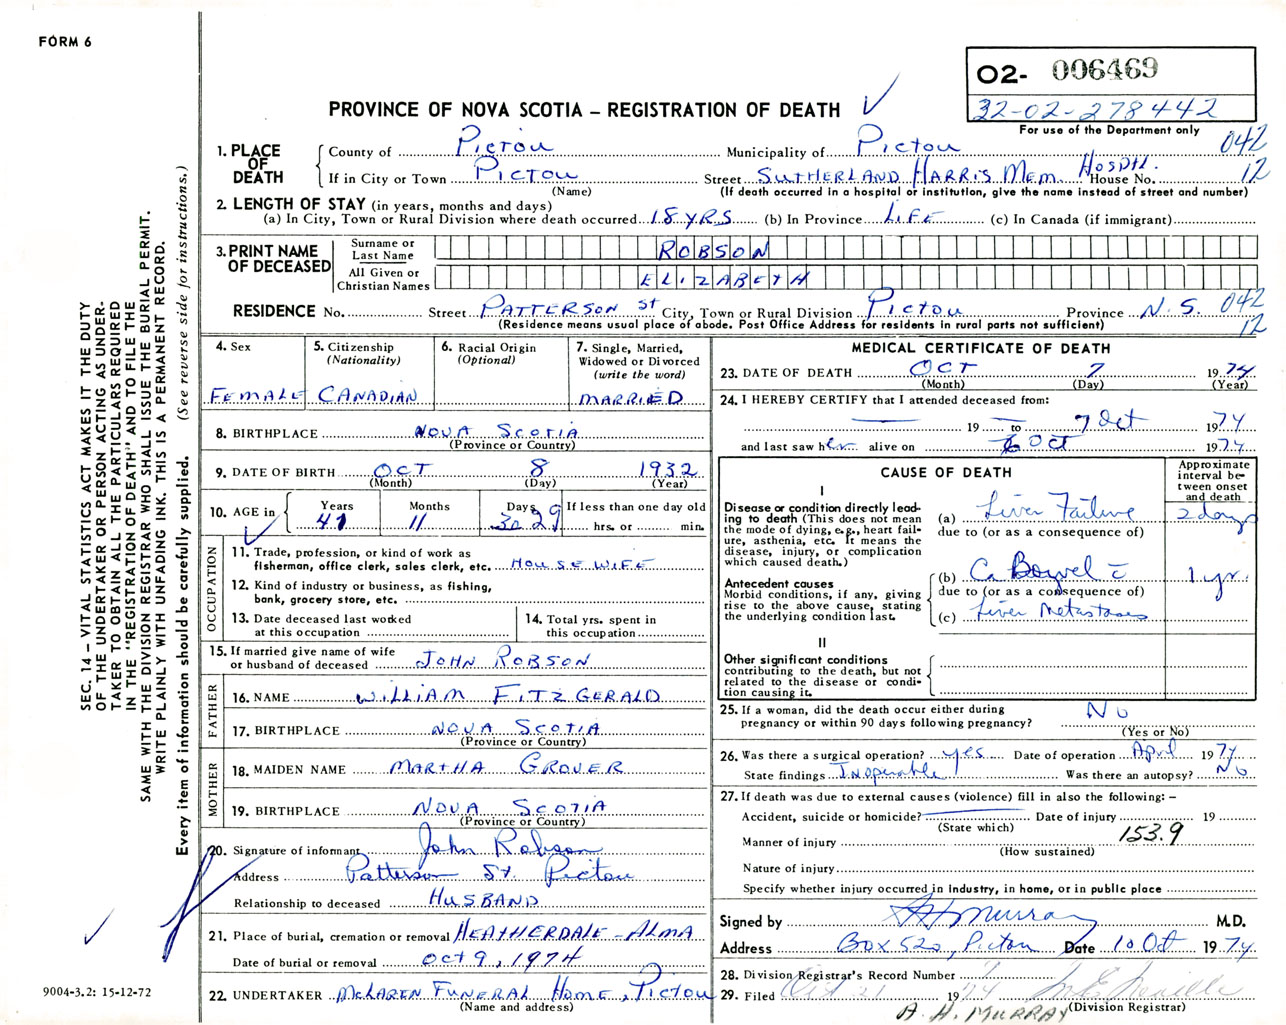 FORM 6
O2- 006469
32-02-278442
For use of the Department only
PROVINCE OF NOVA SCOTIA – REGISTRATION OF DEATH
1. PLACE OF DEATH
County of Pictou Municipality of Pictou 042
If in City or Town Pictou Street Sutherland Harris Mem. Hosptl. House No. 12
(Name) (If death occurred in a hospital or institution, give the name instead of street and number)
2. LENGTH OF STAY (in years, months and days)
(a) In City, Town or Rural Division where death occurred 18 YRS (b) In Province LIFE (c) In Canada (if immigrant)
3. PRINT NAME OF DECEASED
Surname or Last Name ROBSON
All Given or Christian Names ELIZABETH
RESIDENCE No. Street PATTERSON St City, Town or Rural Division Pictou Province N.S. 042
(Residence means usual place of abode. Post Office Address for residents in rural parts not sufficient) 12
4. Sex FEMALE
5. Citizenship (Nationality) CANADIAN
6. Racial Origin (Optional)
7. Single, Married, Widowed or Divorced (write the word) MARRIED
8. BIRTHPLACE NOVA SCOTIA
(Province or Country)
9. DATE OF BIRTH OCT 8 1932
(Month) (Day) (Year)
10. AGE in Years Months Days If less than one day old
41 11 30 29 hrs. or min.
OCCUPATION
11. Trade, profession, or kind of work as fisherman, office clerk, sales clerk, etc. HOUSEWIFE
12. Kind of industry or business, as fishing, bank, grocery store, etc.
13. Date deceased last worked at this occupation
14. Total yrs. spent in this occupation
15. If married give name of wife or husband of deceased JOHN ROBSON
FATHER
16. NAME WILLIAM FITZGERALD
17. BIRTHPLACE NOVA SCOTIA
(Province or Country)
MOTHER
18. MAIDEN NAME MARTHA GROVER
19. BIRTHPLACE NOVA SCOTIA
(Province or Country)
20. Signature of informant John Robson
Address Patterson St. Pictou
Relationship to deceased HUSBAND
21. Place of burial, cremation or removal HEATHERDALE – ALMA
Date of burial or removal Oct 9, 1974
22. UNDERTAKER McLAREN FUNERAL HOME, PICTOU
(Name and address)
MEDICAL CERTIFICATE OF DEATH
23. DATE OF DEATH OCT 7 1974
(Month) (Day) (Year)
24. I HEREBY CERTIFY that I attended deceased from:
19 to 7 Oct 1974
and last saw her alive on 6 Oct 1974
CAUSE OF DEATH
Approximate interval between onset and death
I
Disease or condition directly leading to death (This does not mean the mode of dying, e.g., heart failure, asthenia, etc. It means the disease, injury, or complication which caused death.)
(a) Liver Failure 2 days
due to (or as a consequence of)
Antecedent causes
Morbid conditions, if any, giving rise to the above cause, stating the underlying condition last.
(b) Ca Bowel c̄ 1 yr.
due to (or as a consequence of)
(c) Liver Metastases
II
Other significant conditions contributing to the death, but not related to the disease or condition causing it.
25. If a woman, did the death occur either during pregnancy or within 90 days following pregnancy? No
(Yes or No)
26. Was there a surgical operation? yes Date of operation April 1974
State findings Inoperable Was there an autopsy? No
27. If death was due to external causes (violence) fill in also the following: –
Accident, suicide or homicide? Date of injury 19
(State which)
Manner of injury 153.9
(How sustained)
Nature of injury
Specify whether injury occurred in Industry, in home, or in public place
Signed by A H Murray M.D.
Address Box 520, Pictou Date 10 Oct 1974
28. Division Registrar's Record Number
29. Filed Oct 21 1974
A. H. MURRAY (Division Registrar)
SEC. 14 – VITAL STATISTICS ACT MAKES IT THE DUTY
OF THE UNDERTAKER OR PERSON ACTING AS UNDER-
TAKER TO OBTAIN ALL THE PARTICULARS REQUIRED
IN THE "REGISTRATION OF DEATH" AND TO FILE THE
SAME WITH THE DIVISION REGISTRAR WHO SHALL ISSUE THE BURIAL PERMIT.
WRITE PLAINLY WITH UNFADING INK. THIS IS A PERMANENT RECORD.
Every item of information should be carefully supplied. (See reverse side for instructions.)
9004-3.2: 15-12-72